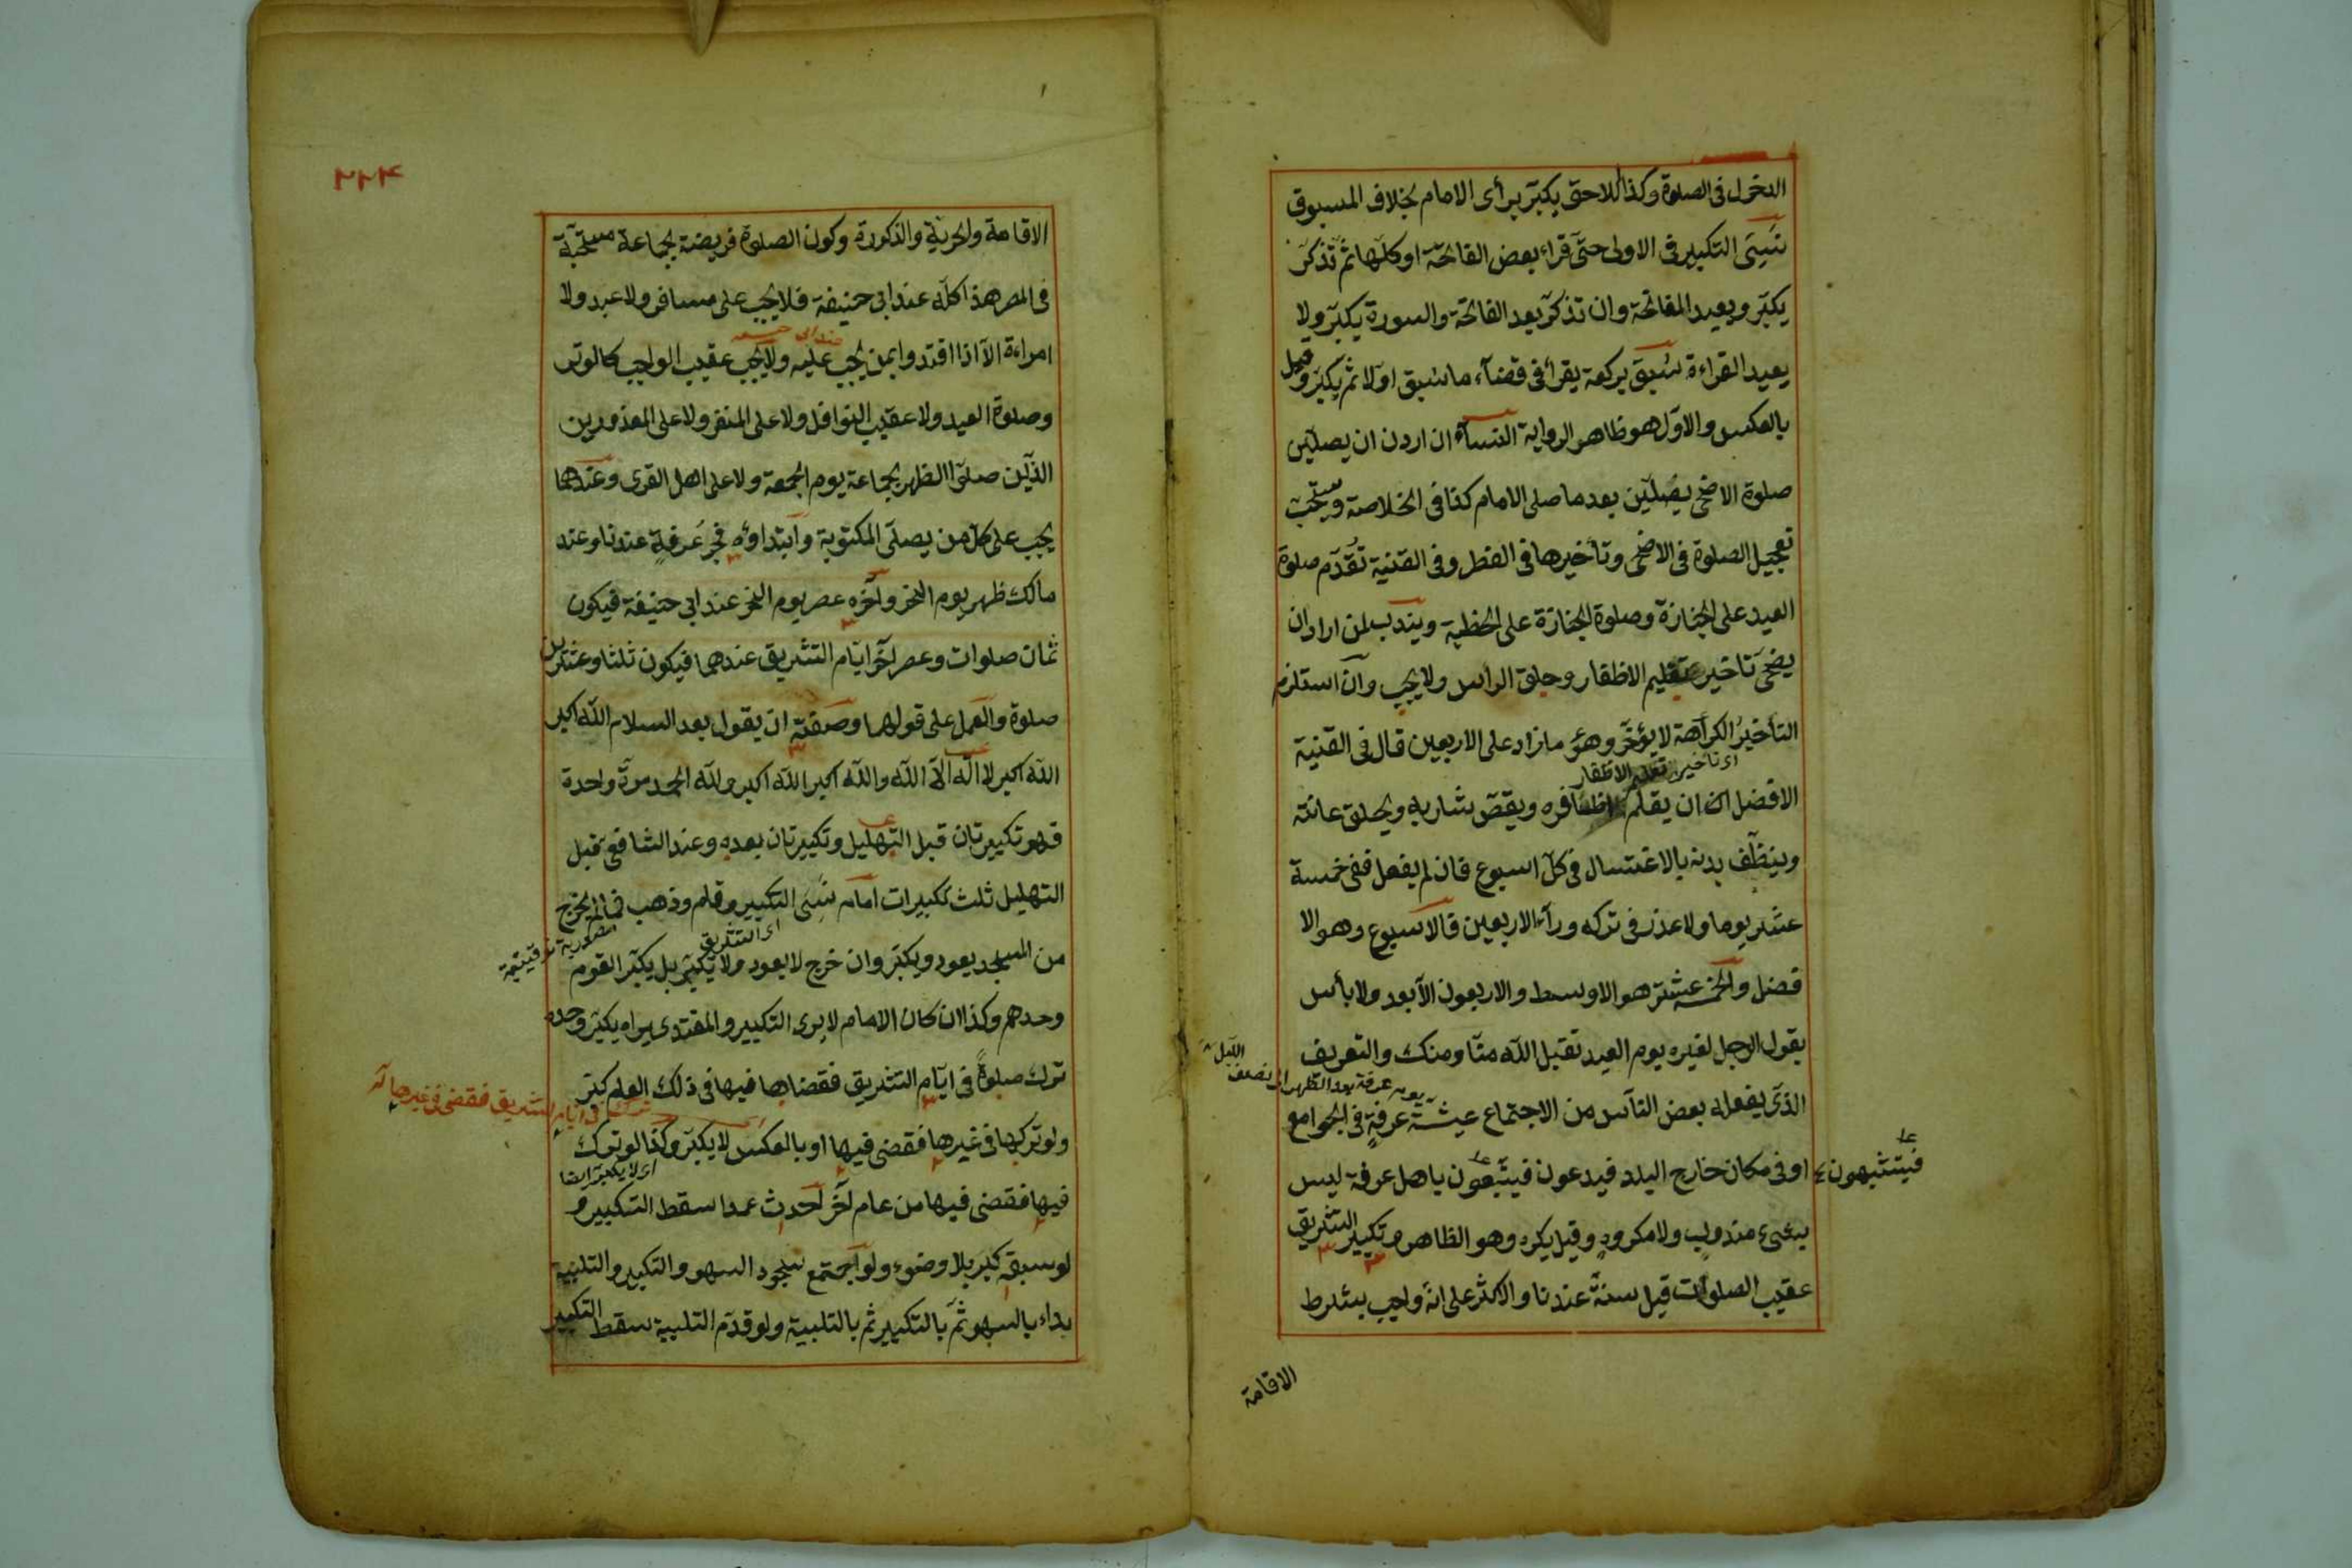 الدخول فى الصلوة وكذا اللاحق يكبّر برأى الامام بخلاف المسبوق
نَسِىَ التكبير فى الاولى حتّى قراء بعض الفاتحة او كلّها ثمّ تذكّر
يكبّر ويعيد الفاتحة وان تذكّر بعد الفاتحة والسورة يكبّر ولا
يعيد القراءة سُبِقَ بركعة يقرأ فى قضآء ما سُبق اوّلا ثم يكبّر وقيل
بالعكس والاوّل هو ظاهر الرواية النسآء ان اردن ان يصلّين
صلوة الاضحى يصلّين بعد ما صلى الامام كذا فى الخلاصة ويستحبّ
تعجيل الصلوة فى الاضحى وتأخيرها فى الفطر وفى القنية تُقدّم صلوة
العيد على الجنازة وصلوة الجنازة على الخطبة ويندب لمن اراد ان
يضحّى تاخير تقليم الاظفار وحلق الراس ولا يجب وان استلزم
التأخيرُ الكراهة لا يؤخّر وهو ما زاد على الاربعين قال فى القنية
اى تاخير تقليم الاظفار
الافضل ان يقلّم اظافره ويقصّ شاربه ويحلق عانته
وينظّف بدنه بالاغتسال فى كلّ اسبوع فان لم يفعل ففى خمسة
عشر يوما ولا عذر فى تركه ورآء الاربعين فالاسبوع وهو الا
فضل والخمسة عشر هو الاوسط والاربعون الابعد ولا بأس
بقول الرجل لغيره يوم العيد تقبل الله منّا ومنك والتعريف
يوم عرفة بعد الظهر الى نصف الليل
الذى يفعله بعض النآس من الاجتماع عشيّة عرفةٍ فى الجوامع
او فى مكان خارج البلد فيدعون فيتّبعون باهل عرفة ليس
فيتشبهون
بشىء مندوبٍ ولا مكروهٍ وقيل يكره وهو الظاهر وتكبير التشريق
عقيب الصلوات قيل سنةٌ عندنا والاكثر على انه واجب بشرط
الاقامة
٢٢٤
الاقامة والحريّة والذكورة وكون الصلوة فريضة بجماعة مستحبّة
فى المصر هذا كلّه عند ابى حنيفة فلا يجب على مسافر ولا عبد ولا
عند ابى حنيفه
امراءة الاّ اذا اقتدوا بمن يجب عليه ولا يجب عقيب الواجب كالوتر
وصلوة العيد ولا عقيب النوافل ولا على المنفرد ولا على المعذورين
الذين صلّوا الظهر بجماعة يوم الجمعة ولا على اهل القرى وعندهما
يجب على كلّ من يصلّى المكتوبة وابتداؤه فجر عَرفةٍ عندنا وعند
مالك ظهر يوم النحر وآخره عصر يوم النحر عند ابى حنيفة فيكون
ثمان صلوات وعصر آخر ايّام التشريق عندهما فيكون ثلثا وعشرين
صلوة والعمل على قولهما وصفته ان يقول بعد السلام الله اكبر
الله اكبر لا اله الاّ الله والله اكبر الله اكبر ولله الحمد مرّة واحدة
فهو تكبيرتان قبل التهليل وتكبيرتان بعده وعند الشافعى قبل
التهليل ثلث تكبيرات امام نَسِىَ التكبير وقام وذهب فما لم يخرج
اى التشريق
من المسجد يعود ويكبّر وان خرج لا يعود ولا يكبّر بل يكبّر القوم
وحدهم وكذا ان كان الامام لا يرى التكبير والمقتدى يراه يكبّر وحده
ترك صلوةً فى ايّام التشريق فقضاها فيها فى ذلك العام كبّر
ترك فى ايام التشريق فقضى فى غيرها
ولو تركها فى غيرها فقضى فيها او بالعكس لا يكبّر وكذا لو ترك
اى لا يكبّر ايضا
فيها فقضى فيها من عام آخر احدث عمدا سقط التكبير و
لو سبقه كبّر بلا وضوء ولو اجتمع سجود السهو والتكبير والتلبية
بداء بالسهو ثمّ بالتكبير ثم بالتلبية ولو قدّم التلبية سقط التكبير